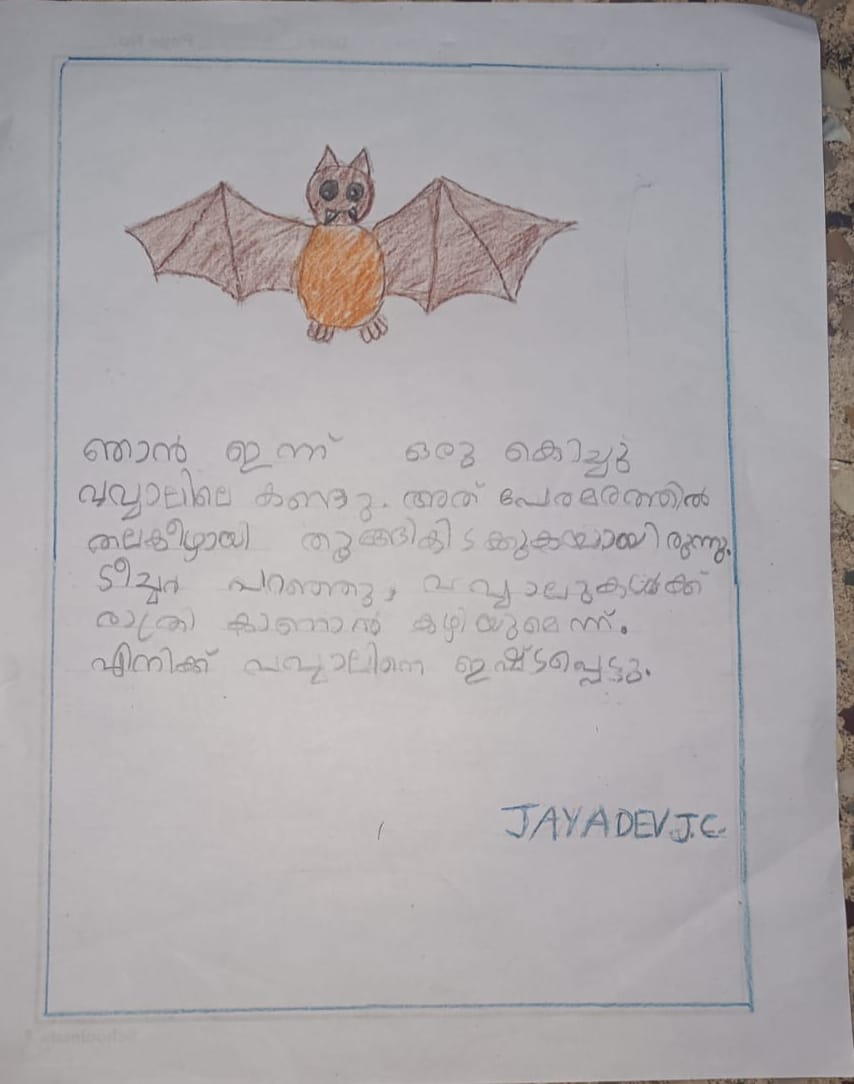 ഞാൻ ഇന്ന് ഒരു കൊച്ചു
വവ്വാലിലെ കണ്ടു. അത് പേരമരത്തിൽ
തലകീഴായി തൂങ്ങികിടക്കുകയായിരുന്നു.
ടീച്ചർ പറഞ്ഞു, വവ്വാലുകൾക്ക്
രാത്രി കാണാൻ കഴിയുമെന്ന്.
എനിക്ക് വവ്വാലിനെ ഇഷ്ടപ്പെട്ടു.
JAYADEV J.C.